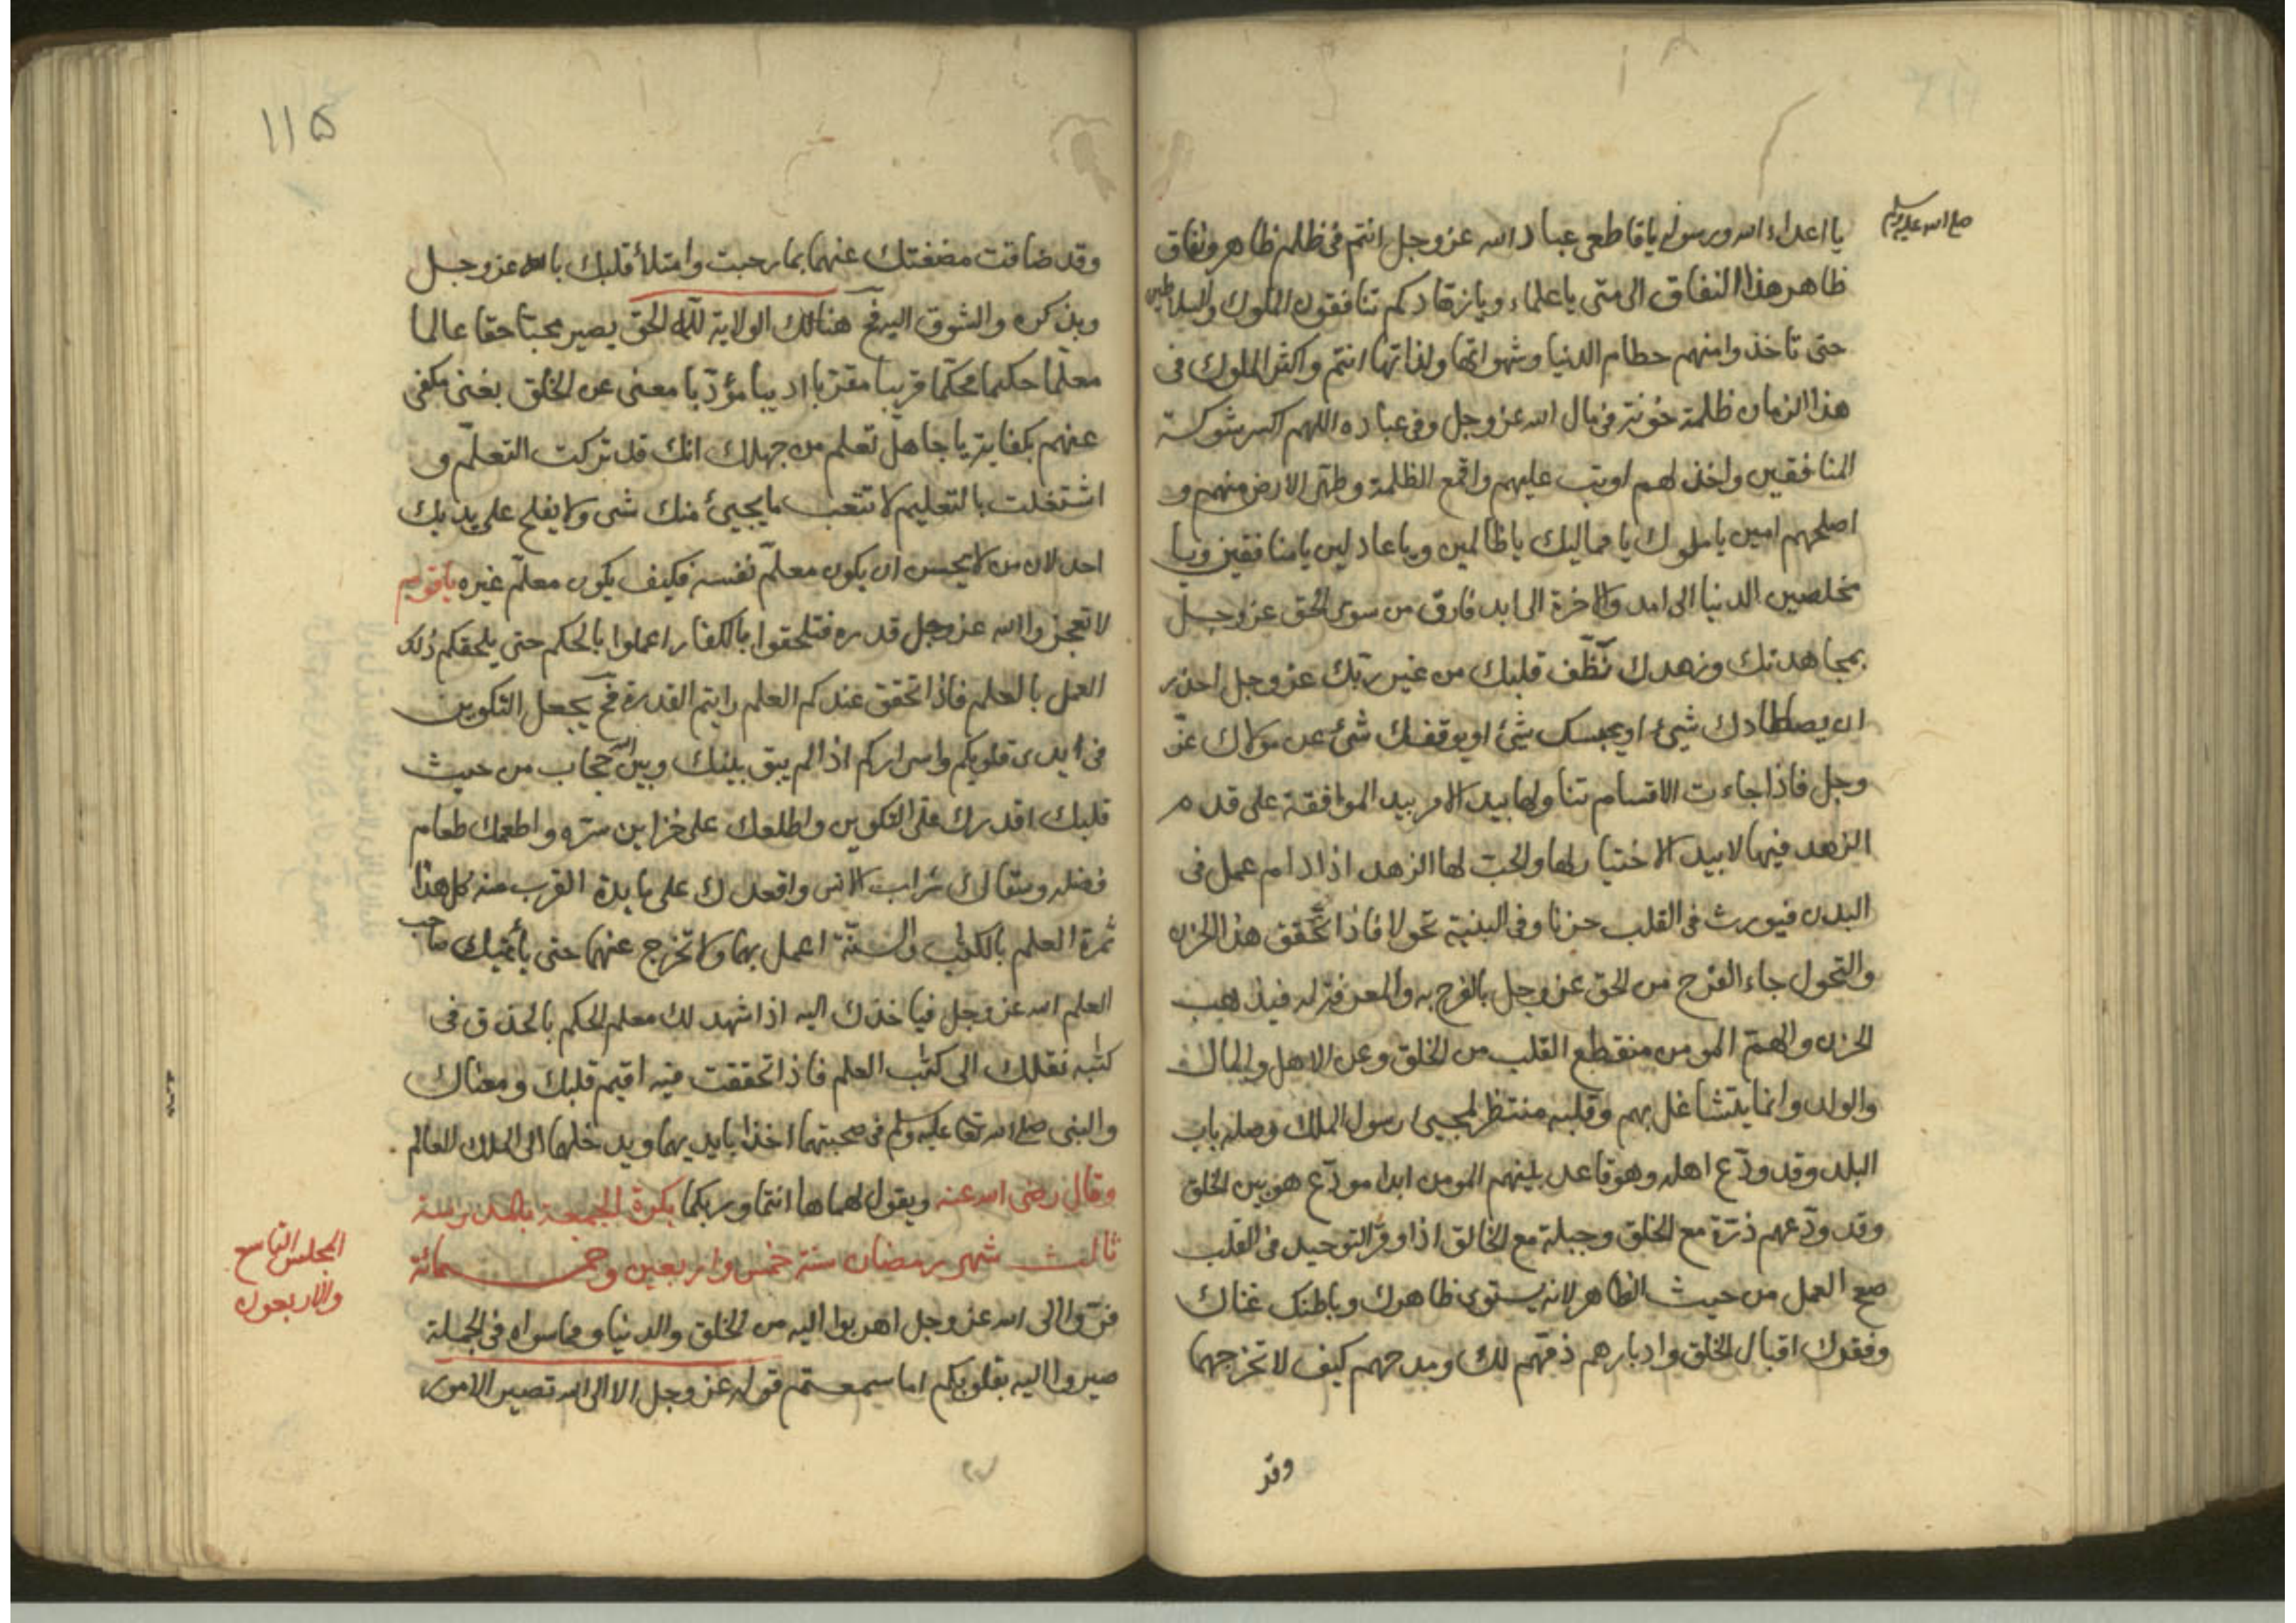 صلى الله عليه وسلم
يا اعداء الله ورسوله يا قاطعى عباد الله عز وجل انتم فى ظلم ظاهر ونفاق
ظاهر هذا النفاق الى متى يا علماء ويا زهاد كم تنافقون الملوك والسلاطين
حتى تاخذوا منهم حطام الدنيا وشهواتها ولذاتها انتم واكثر الملوك فى
هذا الزمان ظلمة خونة فى مال الله عز وجل وفى عباده اللهم اكسر شوكة
المنافقين واخذلهم او تب عليهم واقمع الظلمة وطهر الارض منهم و
اصلحهم امين يا ملوك يا مماليك يا ظالمين ويا عادلين يا منافقين ويا
مخلصين الدنيا الى امد والاخرة الى ابد فارق من سوى الحق عز وجل
بمجاهدتك وزهدك نظّف قلبك من غير ربك عز وجل احذر
ان يصطادك شئ او يحبسك شئ او يوقفك شئ عن مولاك عزّ
وجل فاذا جاءت الاقسام تناولها بيد الامر بيد الموافقة على قدم
الزهد فيها لا بيد الاختيار لها والحب لها الزهد اذا دام عمل فى
البدن فيورث فى القلب حزنا وفى البنية نحولا فاذا تحقق هذا الحزن
والنحول جاء الفرح من الحق عز وجل بالفرح به والمعرفة له فيذهب
الحزن والهمّ المومن منقطع القلب من الخلق وعن الاهل والمال
والولد وانما يتشاغل بهم وقلبه منتظر لمجيئ رسول الملك وصله باب
البلد وقد ودّع اهله وهو قاعد بينهم المومن ابدا مودّع هو بين الخلق
وقد ودّعهم ذرّة مع الخلق وجبلة مع الخالق اذا وقر التوحيد فى القلب
صح العمل من حيث الظاهر لانه يستوى ظاهرك وباطنك غناك
وفقرك اقبال الخلق وادبارهم ذمّهم لك ومدحهم كيف لا تخرجهما
وقد
115
وقد ضاقت مضغتك عنهما بما رحبت وامتلأ قلبك بالله عز وجل
وبذكره والشوق اليه فح هنالك الولاية لله الحق يصير محبّا حقا عالما
معلّما حكيما محكّما قريبا مقرّبا اديبا مؤدّبا مغنى عن الخلق بغنى مكفى
عنهم بكفاية يا جاهل تعلم من جهلك انك قد تركت التعلّم و
اشتغلت بالتعليم لا تتعب ما يجيئ منك شى ولا يفلح على يديك
احد لان من لا يحسن ان يكون معلّم نفسه فكيف يكون معلّم غيره يا قوم
لا تعجزوا الله عز وجل قدره فتلحقوا بالكفار اعملوا بالحكم حتى يلحقكم ذلك
العمل بالعلم فاذا تحقق عندكم العلم رايتم القدرة فح يجعل التكوين
فى ايدى قلوبكم واسراركم اذا لم يبق بينك وبين الله حجاب من حيث
قلبك اقدرك على التكوين واطلعك على خزاين سرّه واطعمك طعام
فضله وسقاك شراب الانس واقعدك على مايدة القرب منه كل هذا
ثمرة العلم بالكتاب والسنّة اعمل بهما ولا تخرج عنهما حتى يأتيك صاحب
العلم الله عز وجل فياخذك اليه اذا شهد لك معلم الحكم بالحذق فى
كتّابه نقلك الى كتّاب العلم فاذا تحققت فيه اقيم قلبك ومعناك
والنبى صلى الله تعا عليه وسلم فى صحبتهما اخذا بايديهما ويدخلهما الى الملك العالم
وقال رضى الله عنه ويقول لهما ها انتما وربكما بكرة الجمعة بالمدرسة
ثالث شهر رمضان سنة خمس واربعين وخمسمائة
المجلس التاسع
والاربعون
فرّوا الى الله عز وجل اهربوا اليه من الخلق والدنيا ومما سواه فى الجملة
صيروا اليه بقلوبكم اما سمعتم قوله عز وجل الا الى الله تصير الامور